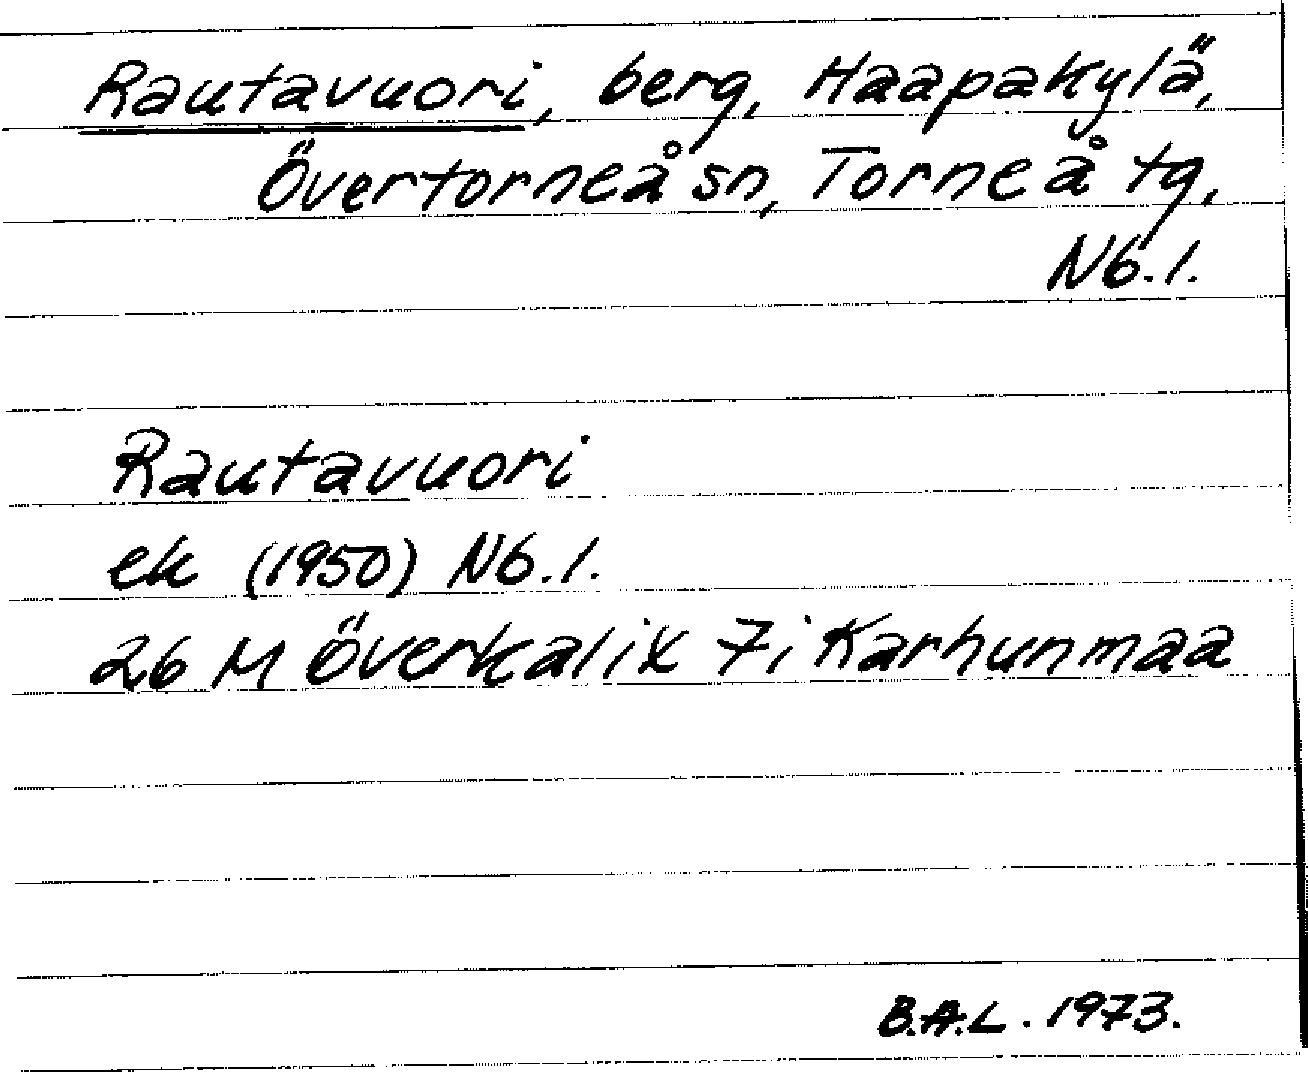 Rautavuori, berg, Haapakylä,
Övertorneå sn, Torneå tg,
Nb. l.
Rautavuori
ek (1950) Nb. l.
26 M Överkalix 7i Karhunmaa
B.A.L. 1973.